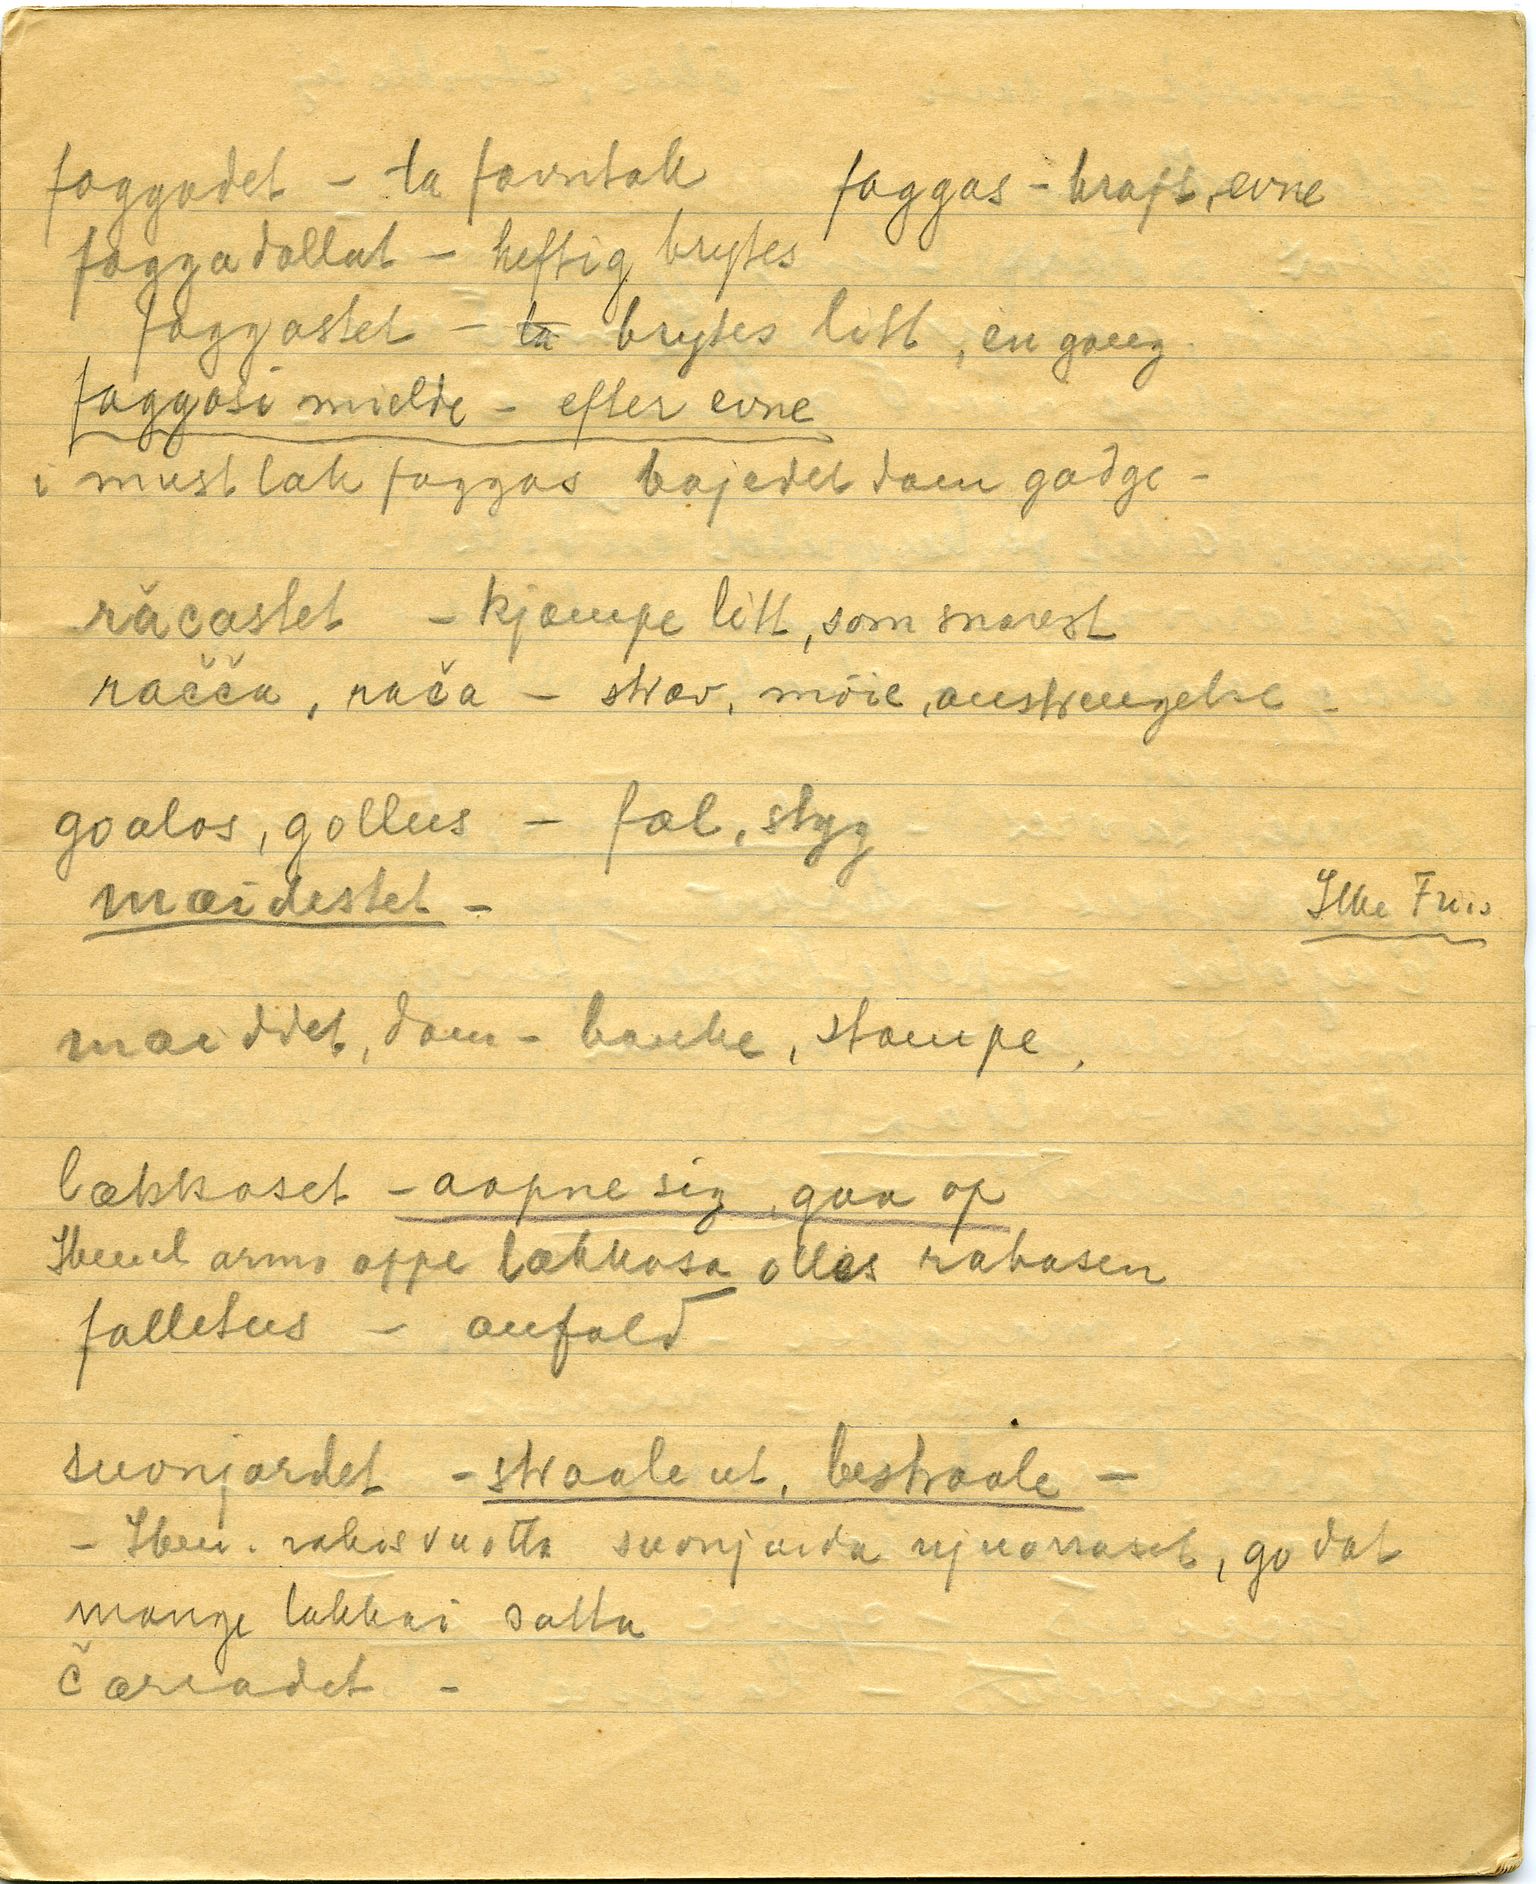 faggadet – ta favntak    faggas – kraft, evne
faggadallat – heftig brytes
faggastet – ta brytes litt, en gang
faggasi mielde – efter evne
i must læk faggas bajedet dam gæđge –
răcastet – kjæmpe litt, som snarest
račča, rača – stræv, möie, anstrengelse –
goalos, gollus – fæl, styg
mæidestet –    Ikke Friis
mæiddet, dam – banke, stampe,
lækkaset – aapne sig, gaa op
Ibmel armo appe lækkasa olles rabasen
falletus – anfald
suonjardet – straale ut, bestraale –
– Ibm. rakisvuotta suonjarda njuorraset, go dat
mange lakkai satta
čæraadet –